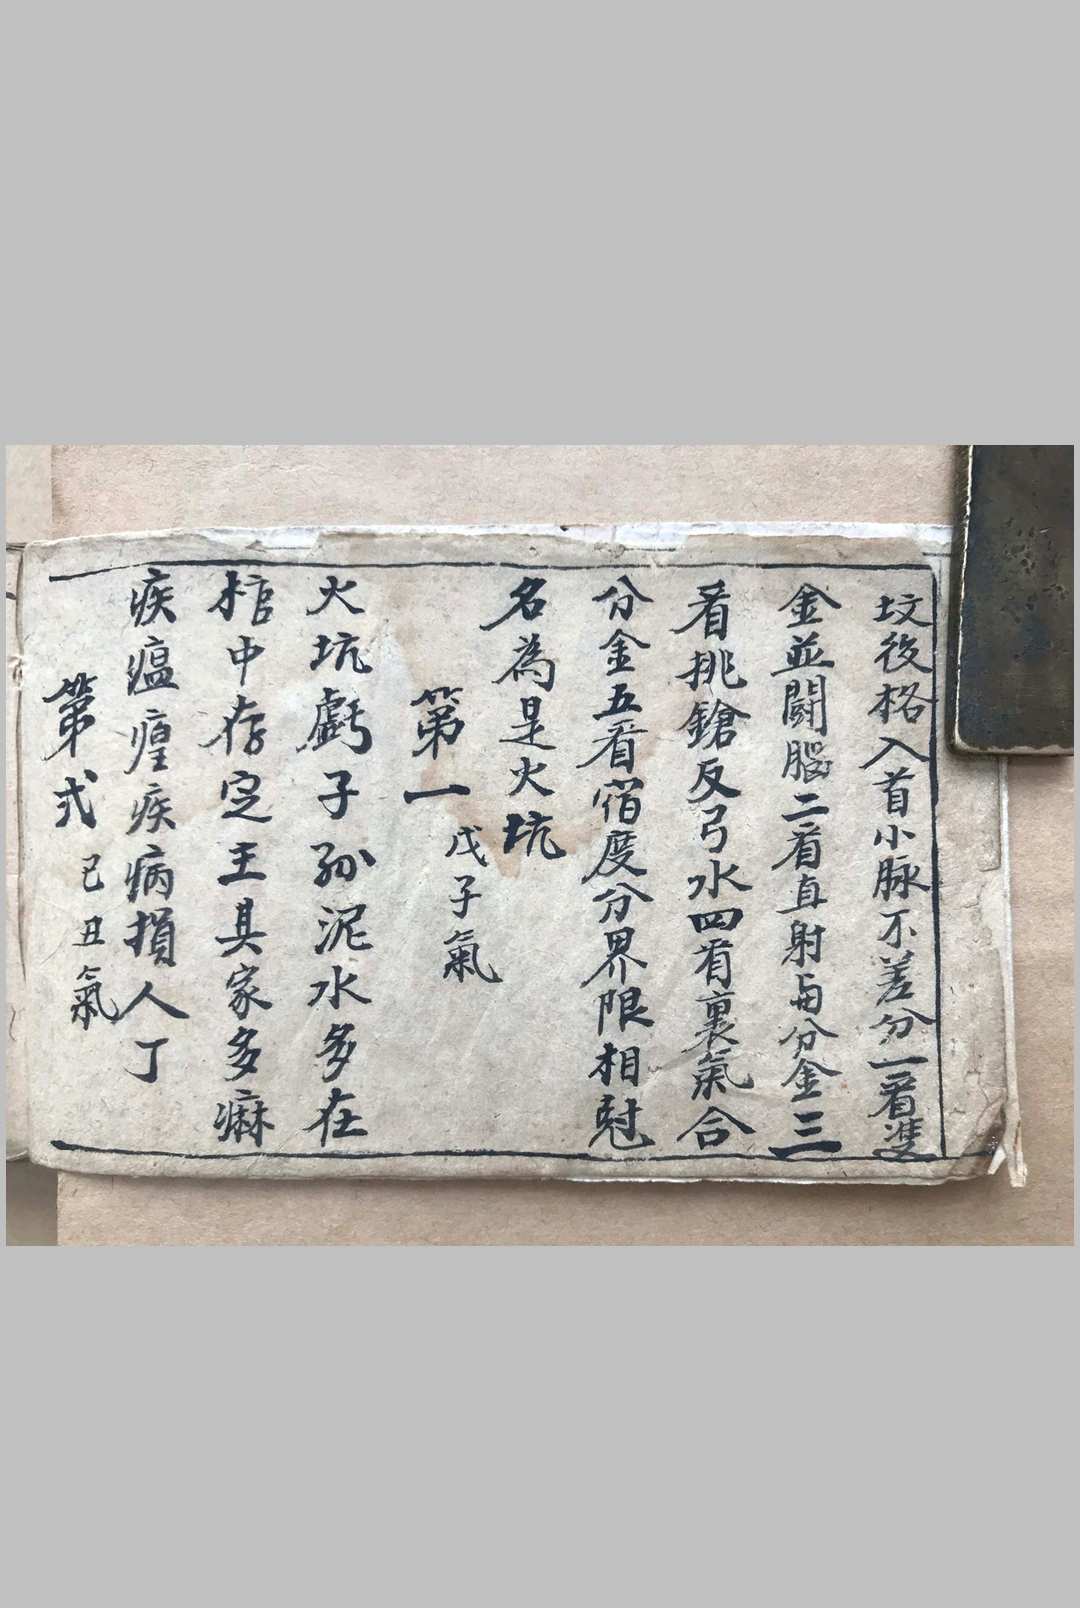 坟後格入首小脉不差分一看雙
金並鬪腦二看直射与分金三
看挑鎗反弓水四看裏氣合
分金五看宿度分界限相尅
名為是火坑
第一 戊子氣
火坑虧子孙泥水多在
棺中存定主其家多麻
疾瘟瘟疾病損人丁
第弍 己丑氣